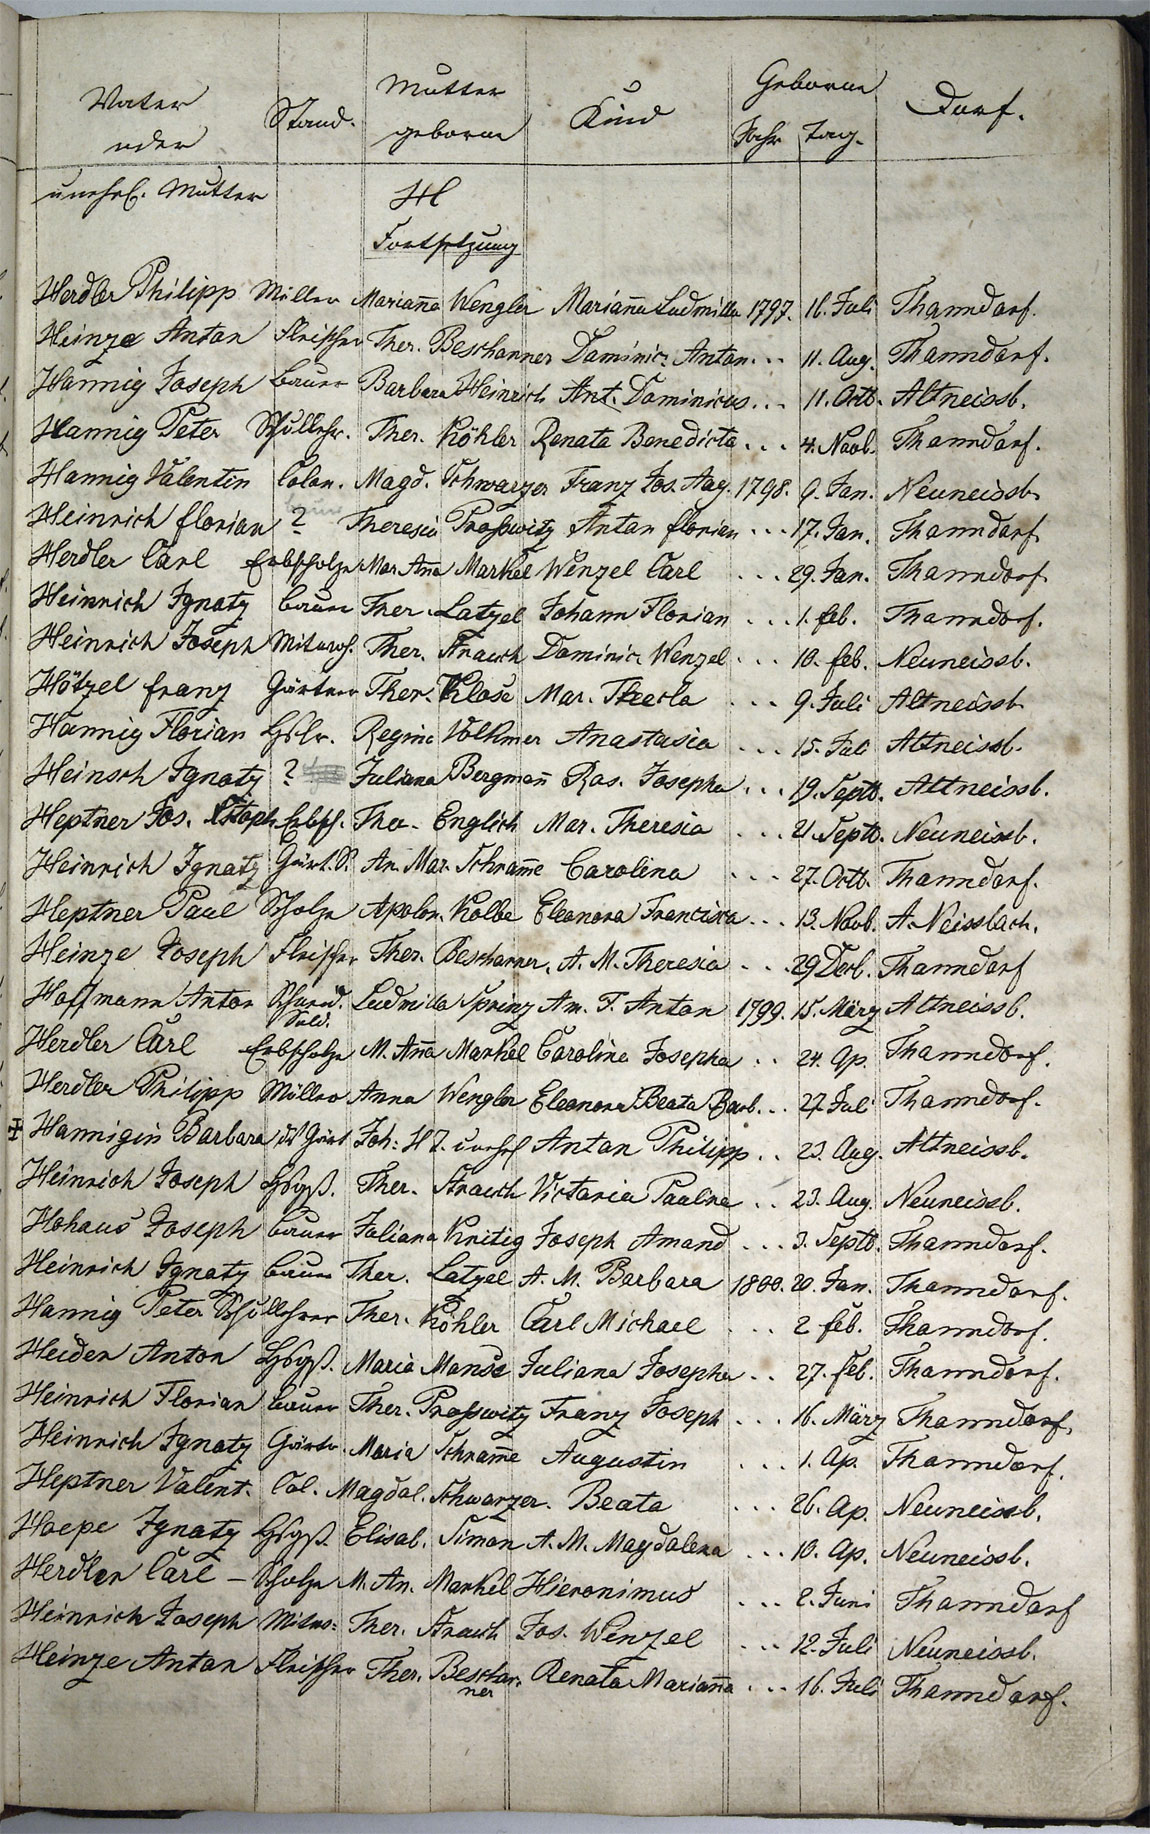 Vater oder Stand. Mutter geborne Kind Geboren Jahr Tag. Dorf.
unehel. Mutter H
Fortsetzung
Herdler Philipp Müller Mariana Wengler Mariana Ludmilla 1797. 16. Juli Thanndorf.
Heinze Anton Fleischer Ther. Beschorner Dominic. Anton ... 11. Aug. Thanndorf.
Hannig Joseph bauer Barbara Heinrich Ant. Dominicus ... 11. Octb. Altneissb.
Hannig Peter Schullehr. Ther. Köhler Renata Benedicta ... 4. Novb. Thanndorf.
Hannig Valentin Colon. Magd. Schwarzer Franz Jos. Aug. 1798. 9. Jan. Neuneissb.
Heinrich florian ? Theresia Prosswitz Anton florian ... 17. Jan. Thanndorf
Herdler Carl Erbscholze Mar. Ana Markel Wenzel Carl ... 29. Jan. Thanndorf.
Heinrich Ignatz bauer Ther. Latzel Johann Florian ... 1. feb. Thanndorf.
Heinrich Joseph Ther. Strauch Dominic Wenzel ... 10. feb. Neuneissb.
Hötzel franz Gärtner Ther. Klose Mar. Thecla ... 9. Juli Altneissb.
Hannig Florian Hslr. Regina Volkmer Anastasia ... 15. Jul Altneissb.
Heinsch Ignatz ? Juliana Bergman Ros. Josepha ... 19. Septb. Altneissb.
Heptner Jos. Erbsch. The. Englich Mar. Theresia ... 21. Septb. Neuneissb.
Heinrich Ignatz Gärt. S. An. Mar. Schrame Carolina ... 27. Octb. Thanndorf.
Heptner Paul Scholze Apolon. Kolbe Eleonora Francisca ... 13. Novb. A. Neissbach.
Heinze Joseph Fleischer Ther. Beschorner. A. M. Theresia ... 29 Decb. Thanndorf
Hoffmann Anton Schmid. Ludmilla Sprinz Am. F. Anton 1799. 15. März Altneissb.
Sold.
Herdler Carl Erbscholze M. Ana Markel Carolina Josepha .. 24. Ap. Thanndorf.
Herdler Philipp Müller Anna Wengler Eleonora Beata Barb. .. 27. Jul Thanndorf.
Hannigin Barbara Joh: H T. unehl Anton Philipp .. 23. Aug. Altneissb.
Heinrich Joseph Hsgß. Ther. Strauch Victoria Paulina .. 23. Aug. Neuneissb.
Hohaus Joseph bauer Juliana Kritig Joseph Amand ... 3. Septb. Thanndorf.
Heinrich Ignatz bauer Ther. Latzel A. M. Barbara 1800. 20. Jan. Thanndorf.
Hannig Peter Schullehrer Ther. Köhler Carl Michael ... 2 feb. Thanndorf.
Heider Anton Hsgß. Maria Manse Juliana Josepha .. 27. feb. Thanndorf.
Heinrich Florian bauer Ther. Prosswitz Franz Joseph ... 16. März Thanndorf.
Heinrich Ignatz Gärtn. Maria Schrame Augustin ... 1. Ap. Thanndorf.
Heptner Valent. Col. Magdal. Schwarzer. Beata ... 26. Ap. Neuneissb.
Hoepe Ignatz Hsgß. Elisab. Simon A. M. Magdalena ... 10. Ap. Neuneissb.
Herdler Carl — Scholze M. An. Markel Hieronimus ... 2. Juni Thanndorf
Heinrich Joseph Ther. Strauch Jos. Wenzel ... 12. Juli Neuneissb.
Heinze Anton Fleischer Ther. Beschor- Renata Mariana ... 16. Juli Thanndorf.
ner